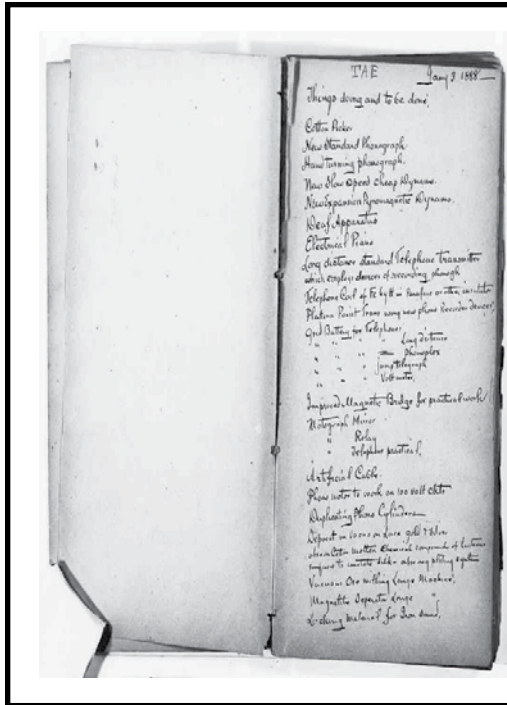 TAE Jany 3. 1888
Things doing and to be done,
Cotton Picker
New Standard Phonograph
Hand turning phonograph.
New Slow Speed cheap Dynamo.
New Expansion Pyromagnetic Dynamo.
Deaf Apparatus
Electrical Piano
Long distance standard Telephone transmitter
which employs devices of recording phonogh
Telephone Coil of Fe by in Parafine or other insulator
Platina Point Trans using new phono Recorder devices,
Grd Battery for Telephones
" " " Long distance
" " " Phonoplex
" " " Jump telegraph
" " " Voltmeter,
Improved Magnetic Bridge for practical work
Motograph Mirror
" Relay
" Telephone practical,
Artificial Cable
Phono motor to work on 100 volt ckts
Duplicating Phono Cylinders
Deposit in vacuo on lace gold & silver
also cotton molten chemical compounds of
Vacuous Ore milling Large Machine,
Magnetic Separator Large "
Locking material for Iron sand,